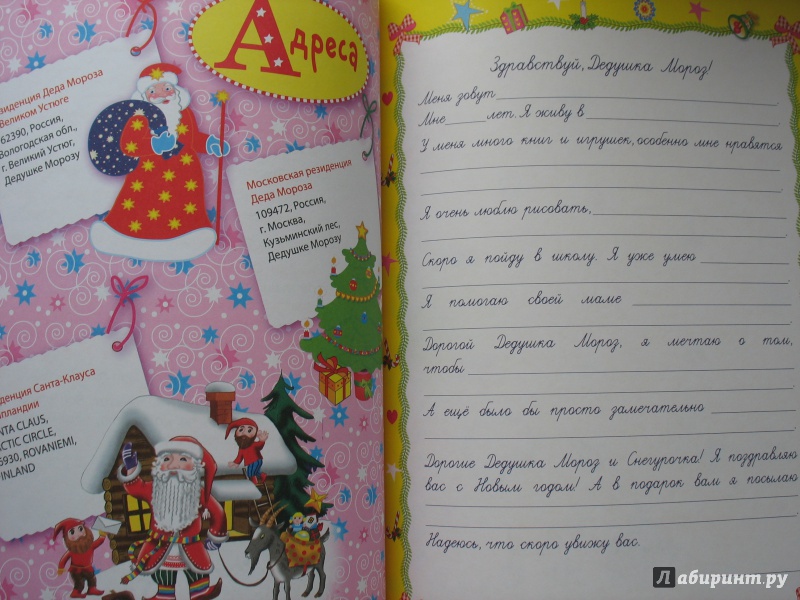 Адреса
зиденция Деда Мороза
Великом Устюге
62390, Россия,
Вологодская обл.,
г. Великий Устюг,
Дедушке Морозу
Московская резиденция
Деда Мороза
109472, Россия,
г. Москва,
Кузьминский лес,
Дедушке Морозу
денция Санта-Клауса
пландии
NTA CLAUS,
CTIC CIRCLE,
6930, ROVANIEMI,
INLAND
Здравствуй, Дедушка Мороз!
Меня зовут
Мне лет. Я живу в
У меня много книг и игрушек, особенно мне нравятся
Я очень люблю рисовать,
Скоро я пойду в школу. Я уже умею
Я помогаю своей маме
Дорогой Дедушка Мороз, я мечтаю о том,
чтобы
А ещё было бы просто замечательно
Дорогие Дедушка Мороз и Снегурочка! Я поздравляю
вас с Новым годом! А в подарок вам я посылаю
Надеюсь, что скоро увижу вас.
Лабиринт.ру